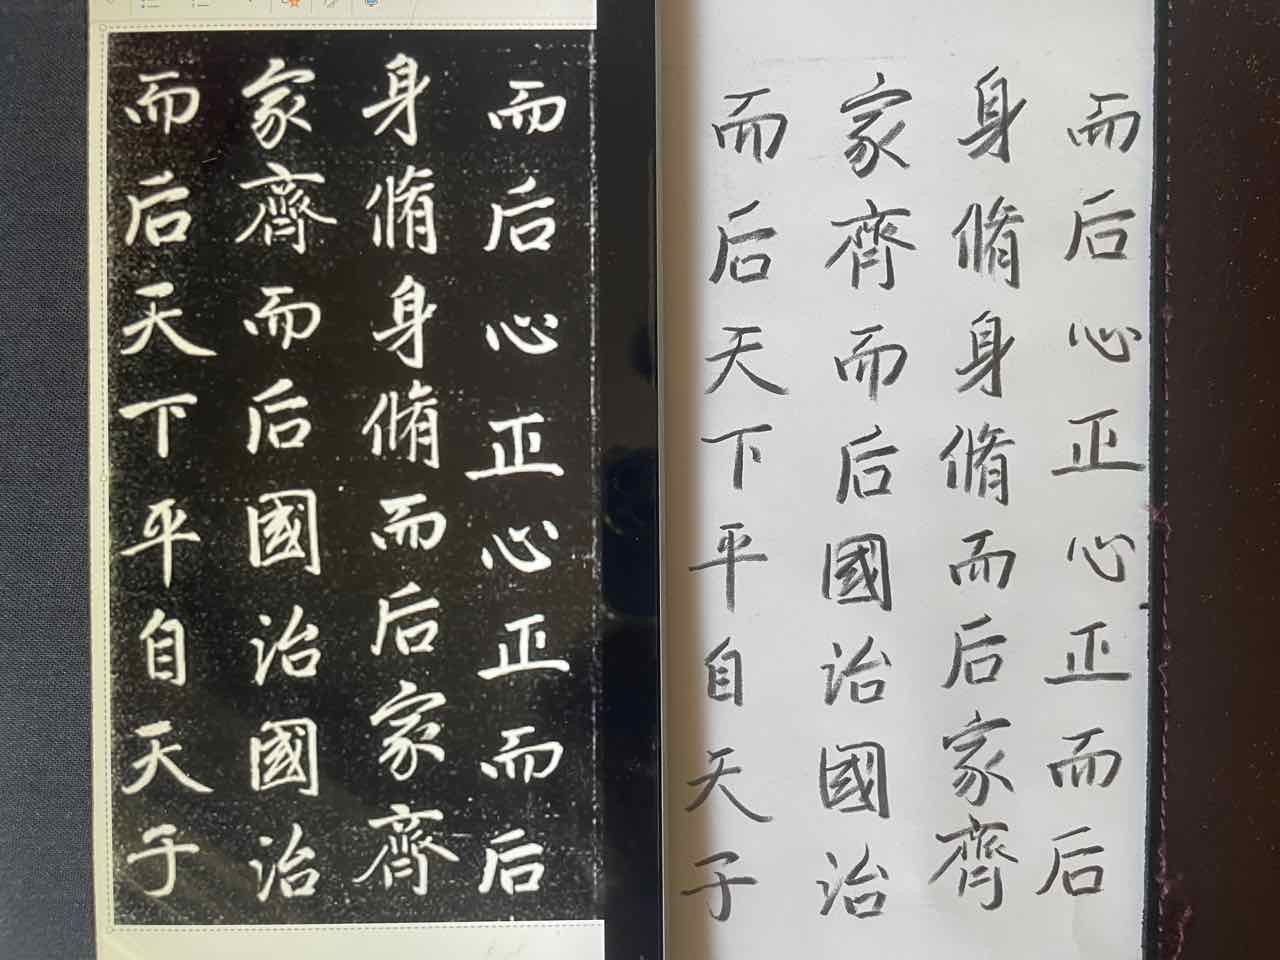 而后心正心正而后
身脩身脩而后家齊
家齊而后國治國治
而后天下平自天子
而后心正心正而后
身脩身脩而后家齊
家齊而后國治國治
而后天下平自天子